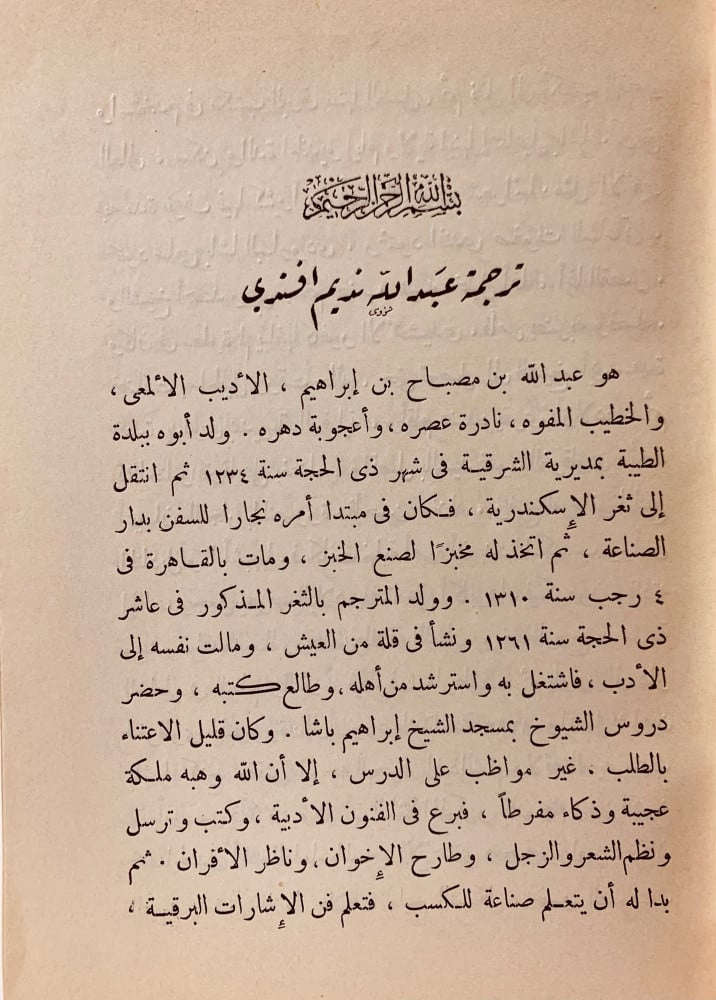 بسم الله الرحمن الرحيم
ترجمة عبد الله نديم افندي
هو عبد الله بن مصباح بن إبراهيم ، الأديب الألمعى ،
والخطيب المفوه ، نادرة عصره ، وأعجوبة دهره . ولد أبوه ببلدة
الطيبة بمديرية الشرقية فى شهر ذى الحجة سنة ١٢٣٤ ثم انتقل
إلى ثغر الإسكندرية ، فكان فى مبتدا أمره نجارا للسفن بدار
الصناعة ، ثم اتخذ له مخبزًا لصنع الخبز ، ومات بالقاهرة فى
٤ رجب سنة ١٣١٠ . وولد المترجم بالثغر المذكور فى عاشر
ذى الحجة سنة ١٢٦١ ونشأ فى قلة من العيش ، ومالت نفسه إلى
الأدب ، فاشتغل به واسترشد من أهله ، وطالع كتبه ، وحضر
دروس الشيوخ بمسجد الشيخ إبراهيم باشا . وكان قليل الاعتناء
بالطلب ، غير مواظب على الدرس ، إلا أن الله وهبه ملكة
عجيبة وذكاء مفرطاً ، فبرع فى الفنون الأدبية ، وكتب وترسل
ونظم الشعر والزجل ، وطارح الإخوان ، وناظر الأقران . ثم
بدا له أن يتعلم صناعة للكسب ، فتعلم فن الإشارات البرقية ،